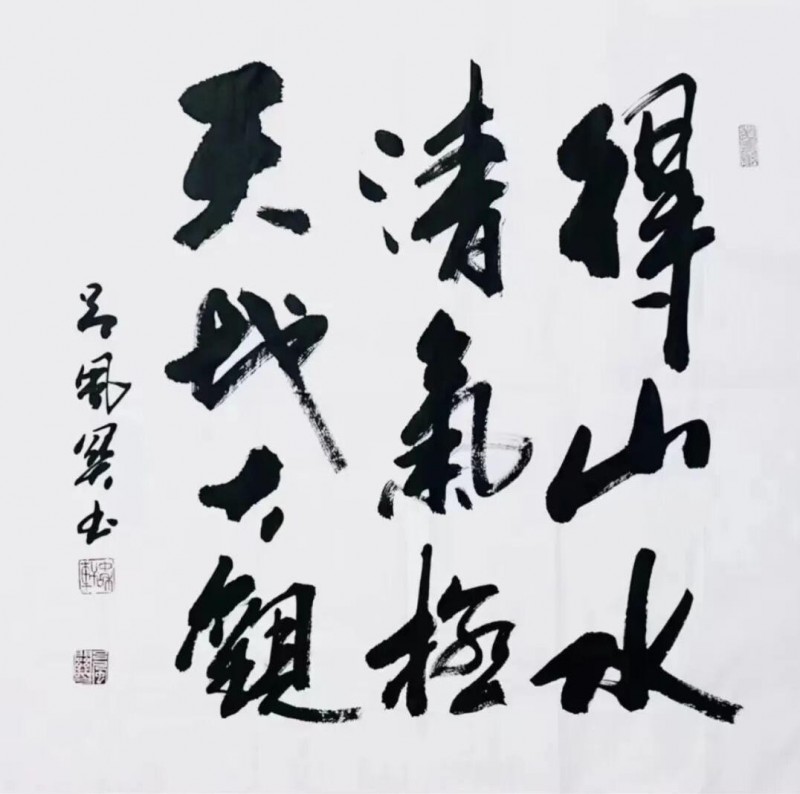 得山水
清氣極
天地大觀
吕凤英书